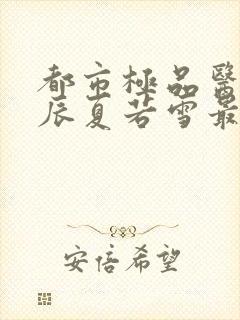 都市極品醫
辰夏若雪最
安倍希望